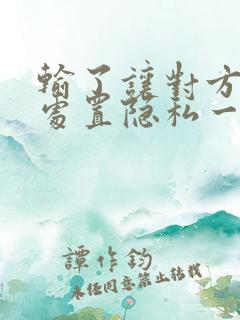 輸了讓對方
處置隐私一
譚作鈞
未经同意禁止转载